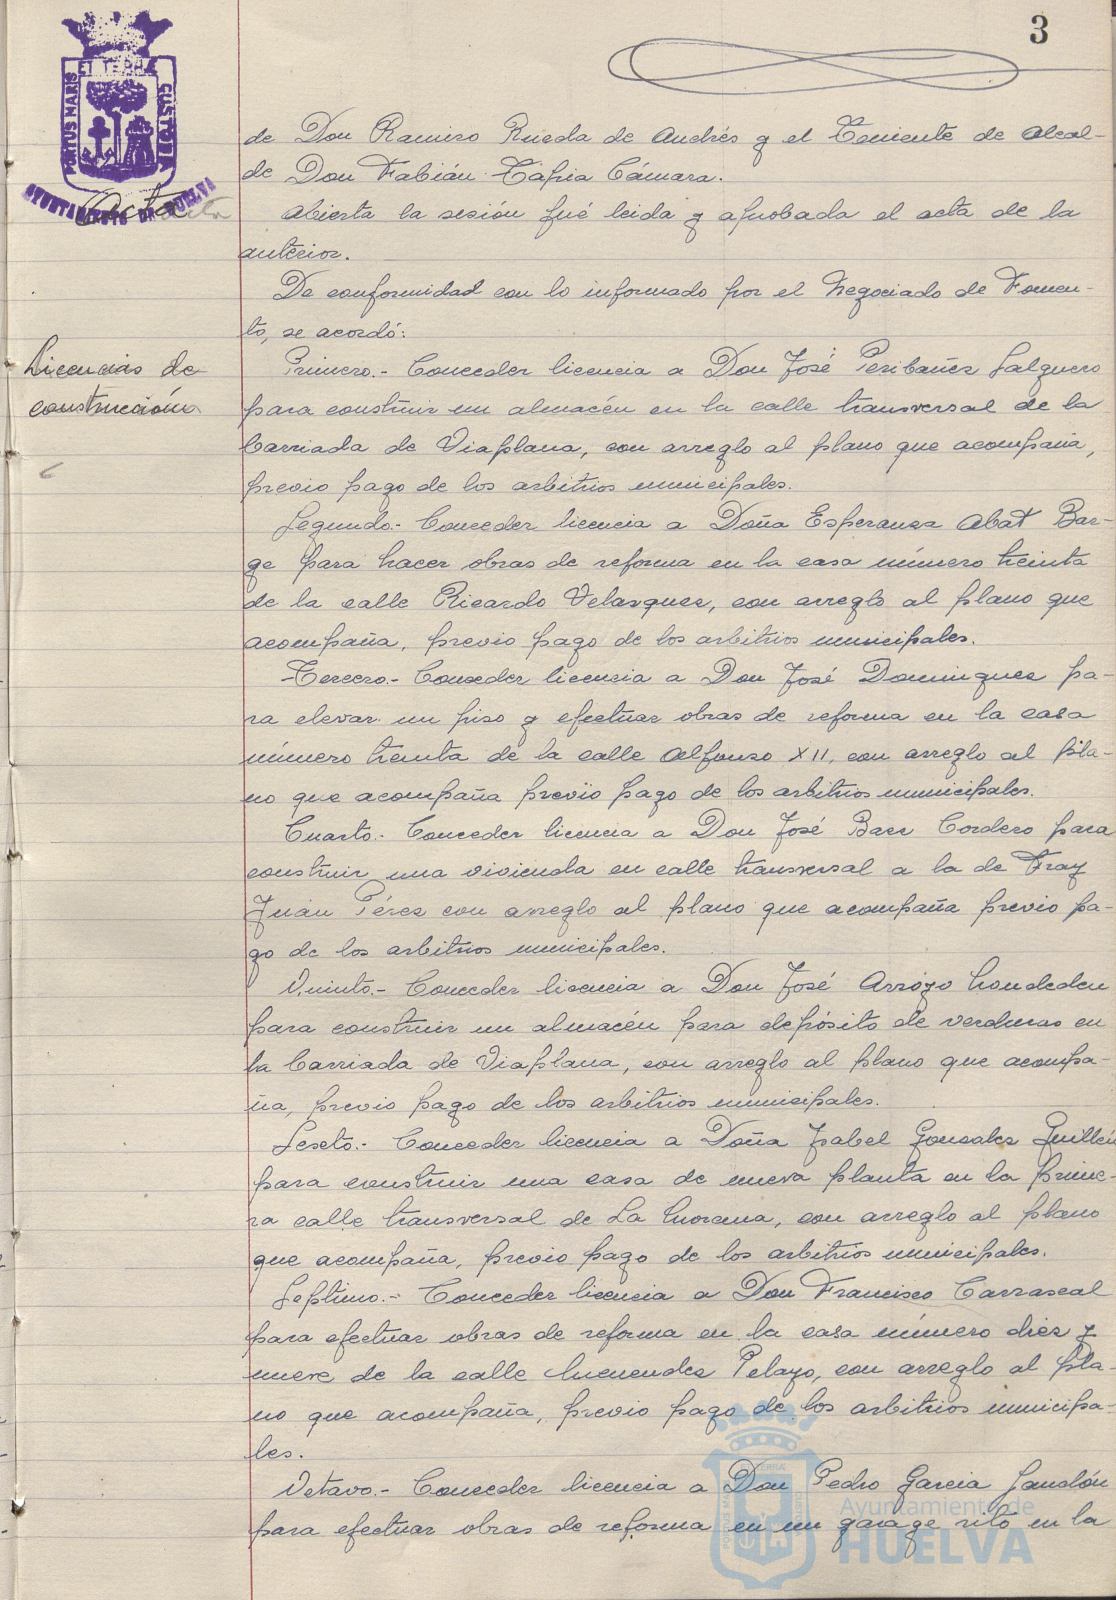 3
PORTUS MARIS ET TERRÆ CUSTODIA
AYUNTAMIENTO DE HUELVA
Acta
de Don Ramiro Rueda de Andrés y el Teniente de Alcal-
de Don Fabián Tapia Cámara.
Abierta la sesión fué leida y aprobada el acta de la
anterior.
De conformidad con lo informado por el Negociado de Fomen-
to, se acordó:
Licencias de
construcción
Primero.- Conceder licencia a Don José Peribañez Salguero
para construir un almacén en la calle transversal de la
barriada de Viaplana, con arreglo al plano que acompaña,
previo pago de los arbitrios municipales.
Segundo.- Conceder licencia a Doña Esperanza Abat Bar-
ge para hacer obras de reforma en la casa número treinta
de la calle Ricardo Velazquez, con arreglo al plano que
acompaña, previo pago de los arbitrios municipales.
Tercero.- Conceder licencia a Don José Dominguez pa-
ra elevar un piso y efectuar obras de reforma en la casa
número treinta de la calle Alfonso XII, con arreglo al pla-
no que acompaña previo pago de los arbitrios municipales.
Cuarto.- Conceder licencia a Don José Baez Cordero para
construir una vivienda en calle transversal a la de Fray
Juan Pérez con arreglo al plano que acompaña previo pa-
go de los arbitrios municipales.
Quinto.- Conceder licencia a Don José Arroyo
para construir un almacén para depósito de verduras en
la barriada de Viaplana, con arreglo al plano que acompa-
ña, previo pago de los arbitrios municipales.
Sexto.- Conceder licencia a Doña Isabel Gonzalez Guillén
para construir una casa de nueva planta en la prime-
ra calle transversal de La Morana, con arreglo al plano
que acompaña, previo pago de los arbitrios municipales.
Septimo.- Conceder licencia a Don Francisco Carrascal
para efectuar obras de reforma en la casa número diez y
nueve de la calle Menendez Pelayo, con arreglo al pla-
no que acompaña, previo pago de los arbitrios municipa-
les.
Octavo.- Conceder licencia a Don Pedro Garcia Jandón
para efectuar obras de reforma en un garage sito en la
Ayuntamiento de
HUELVA